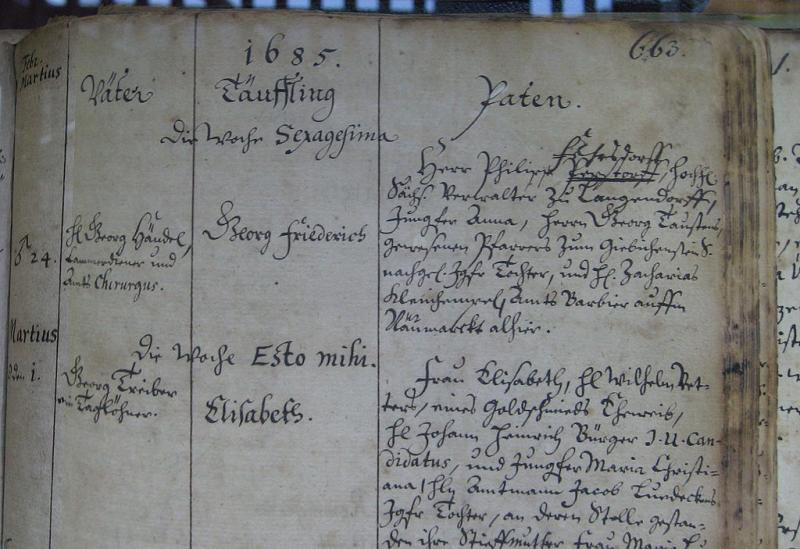 Febr.
Martius
1685.
663.
Väter
Täuffling
Paten.
Die Woche Sexagesima
♂ 24.
H. Georg Händel,
Cammerdiener und
Amts Chirurgus.
Georg Friederich
Herr Philipp Fehrsdorff, Hochfl.
Sächs. Verwalter zu Langendorff,
Jungfer Anna, Herrn Georg Tausten,
gewesenen Pfarrers zum Giebichenstein S.
nachgel. Jgfr Tochter, und H. Zacharias
Kleinhempel, Amts Barbier auffm
Näumarckt alhier.
Martius
Die Woche Esto mihi.
den 1.
Georg Treiber
ein Taglöhner.
Elisabeth.
Frau Elisabeth, H. Wilhelm Vet-
ters, eines Goldschmieds Eheweib,
H. Johann Heinrich Bürger J. U. Can-
didatus, und Jungfer Maria Christi-
ana, Hn Amtmann Jacob Luedeckens
Jgfr Tochter, an deren Stelle gestan-
den ihre Stieffmutter Frau Maria